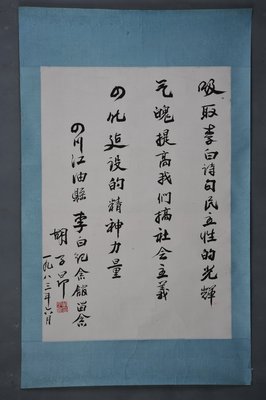 吸取李白诗句民主性的光辉
气魄提高我们搞社会主义
四化建设的精神力量
四川江油县李白纪念馆留念
胡子昂
一九八三年六月